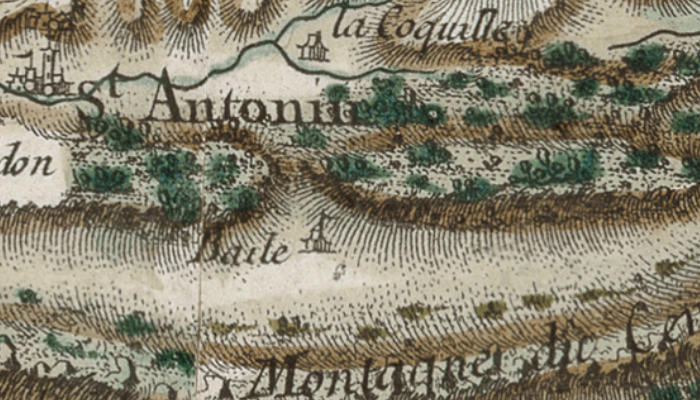 la Coquille
St Antonin
don
Baile
Montagnes du Cen